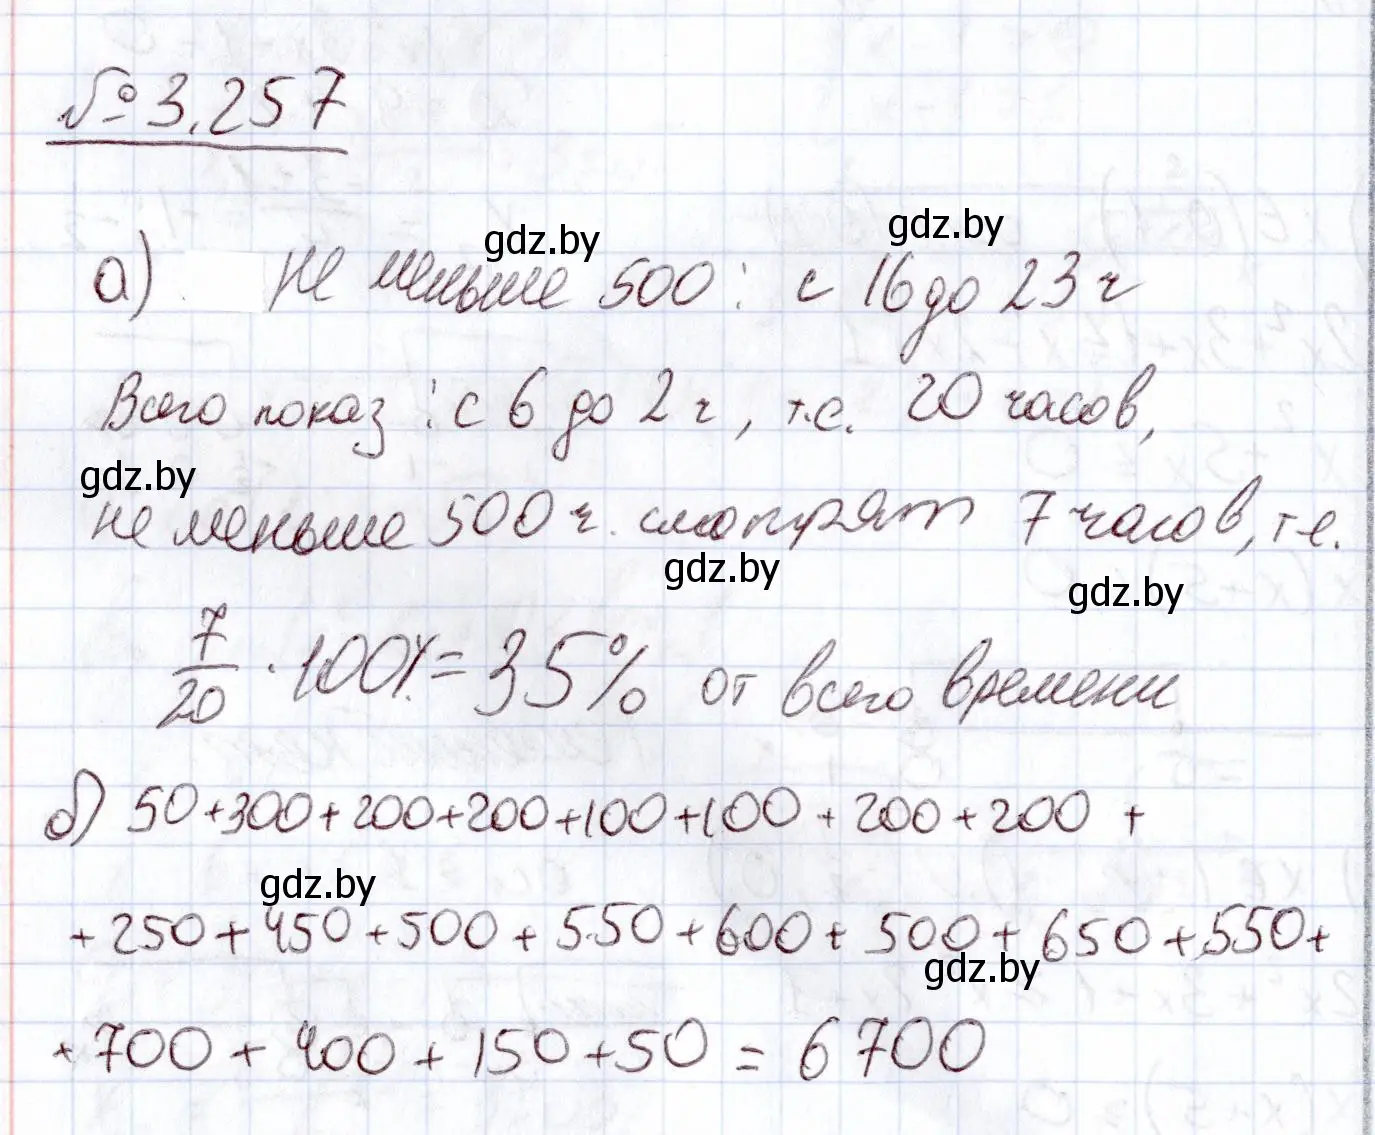 № 3.257
gdz.by
gdz.by
а) не меньше 500: с 16 до 23 ч
Всего показ: с 6 до 2 ч, т.е. 20 часов,
gdz.by
не меньше 500 ч. смотрят 7 часов, т.е.
gdz.by
gdz.by
7/20 · 100% = 35% от всего времени
б) 50+300+200+200+100+100+200+200 +
gdz.by
+ 250 + 450 + 500 + 550 + 600 + 500 + 650 + 550 +
gdz.by
+ 700 + 400 + 150 + 50 = 6700